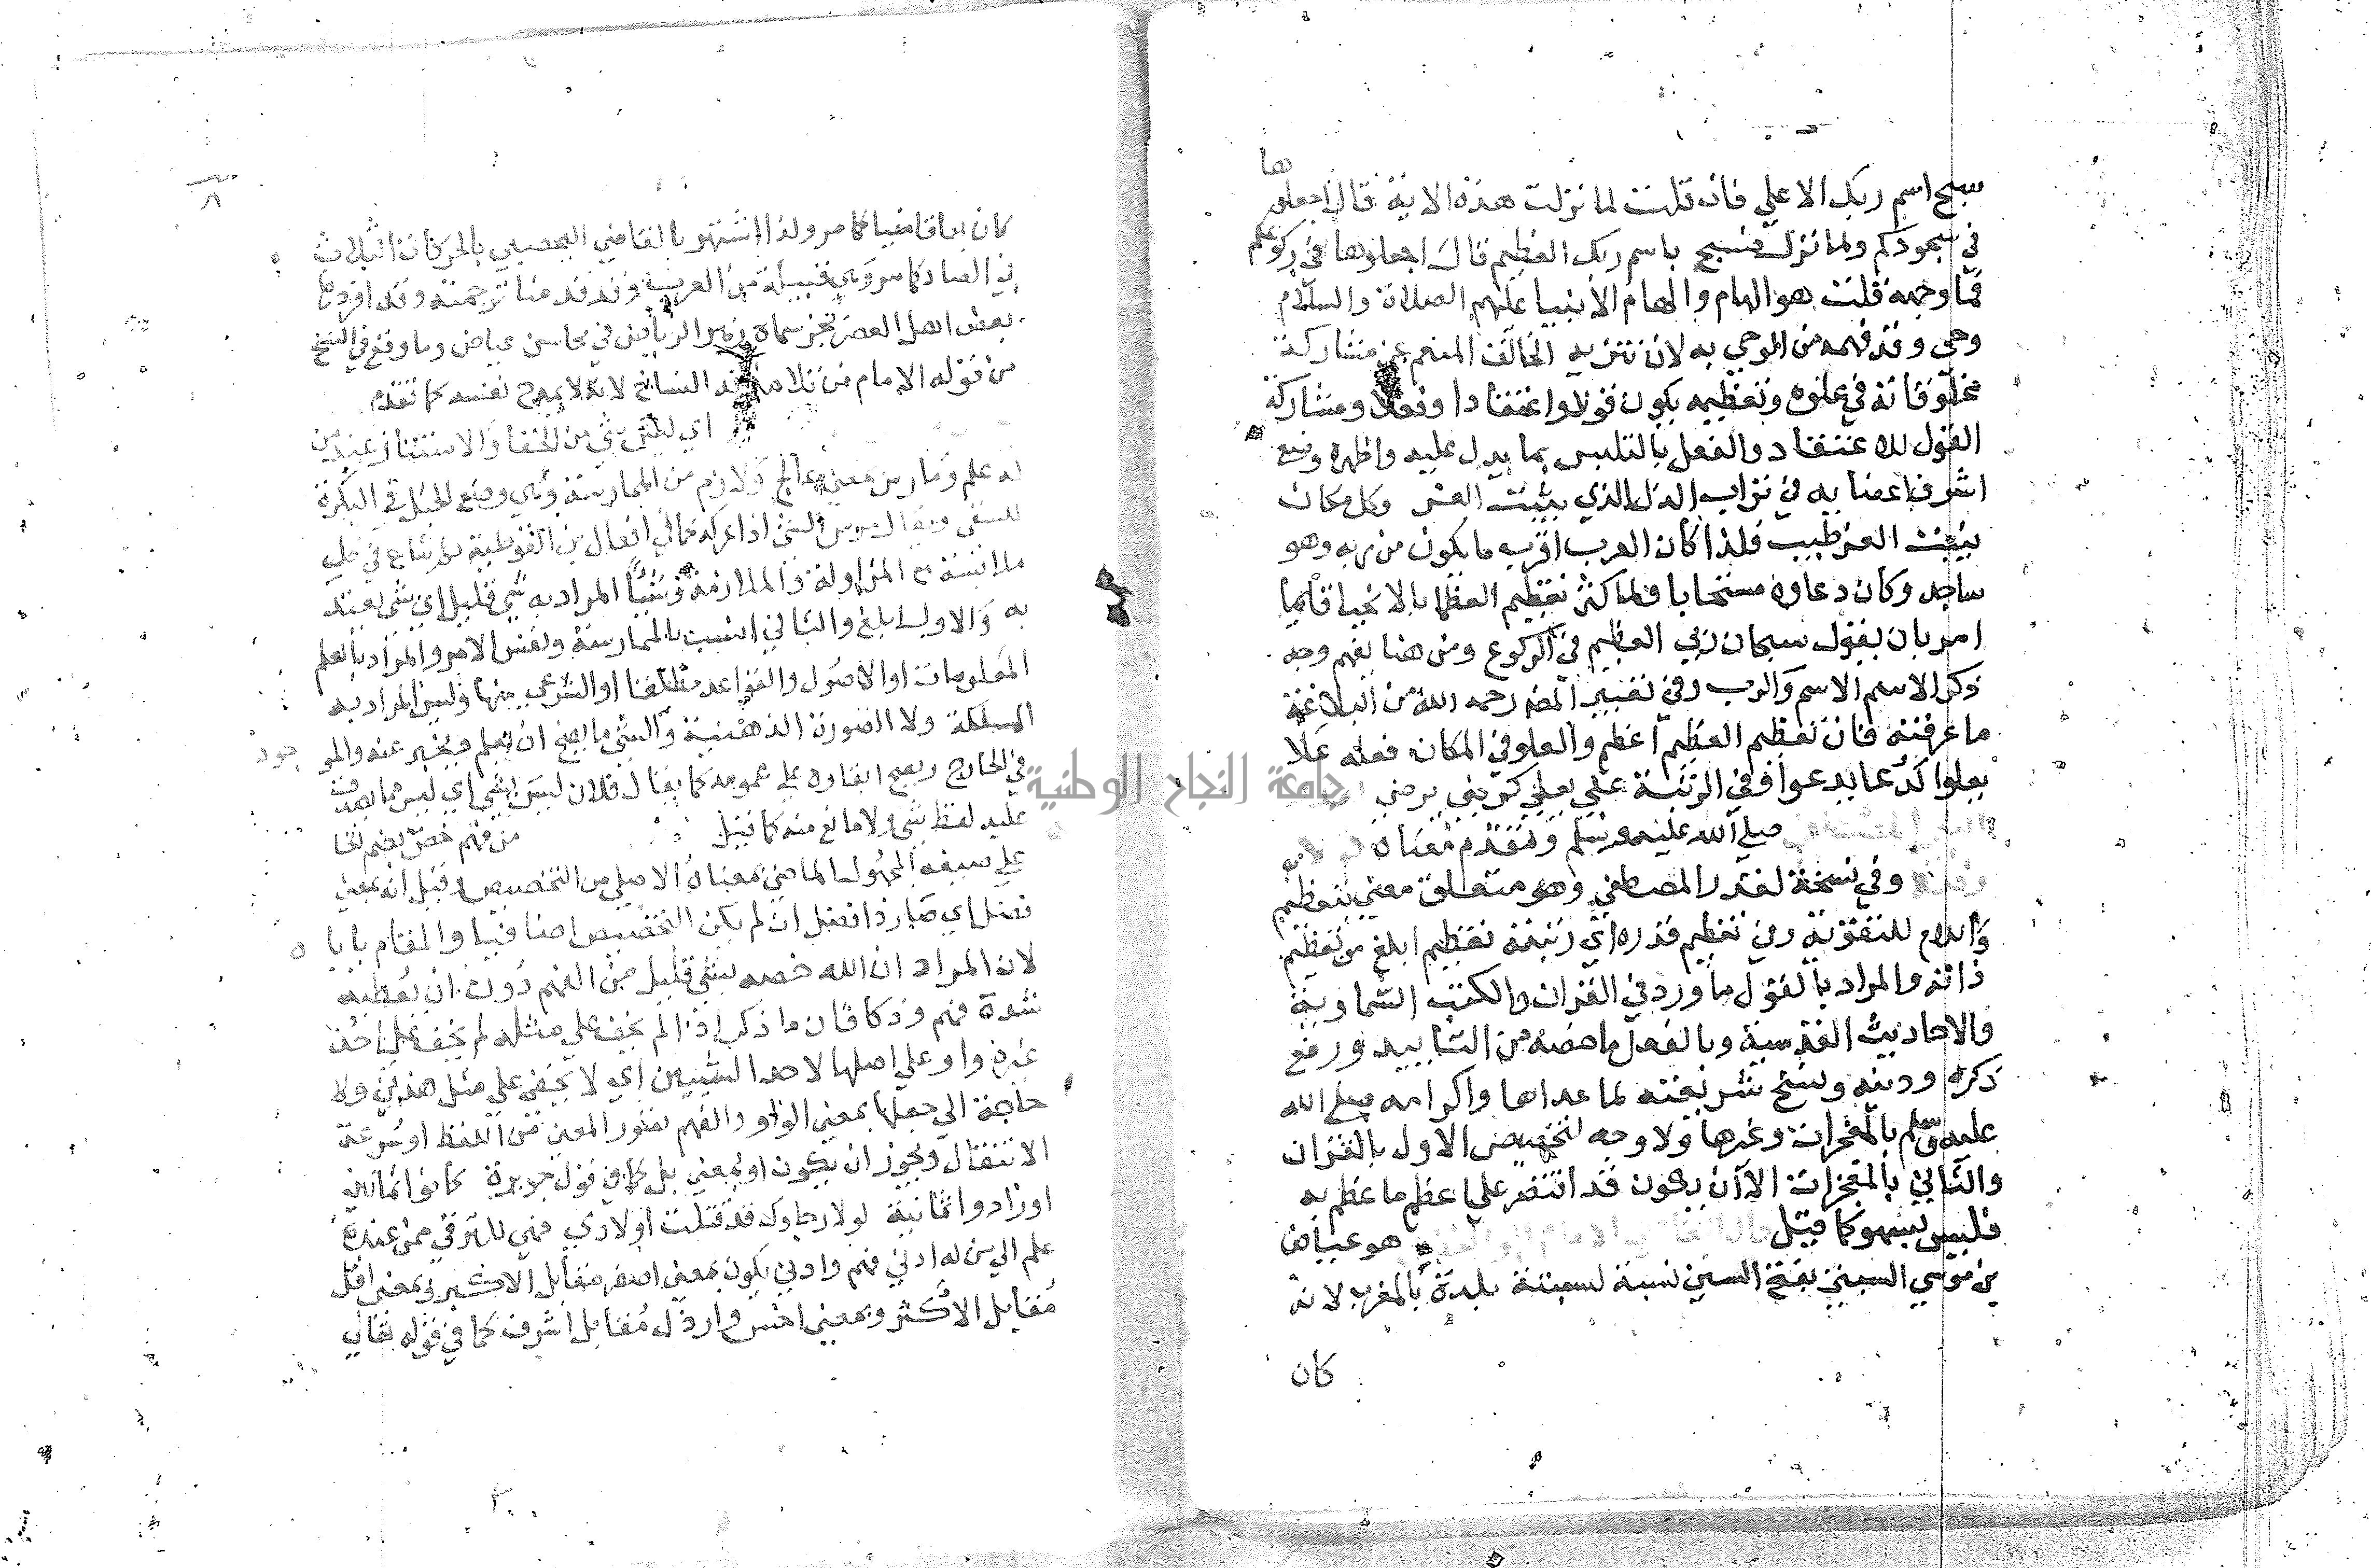 سبح اسم ربك الاعلي فان قلت لما نزلت هذه الاية قال اجعلوها
في سجودكم ولما نزل فسبح باسم ربك العظيم قال اجعلوها في ركوعكم
فما وجهه قلت هو الهام والهام الأنبيا عليهم الصلاة والسلام
وحي وقد فهمه من الموحي به لان تنزيه الخالق المنعم عن مشاركة
مخلوقاته في علوه وتعظيمه يكون قولا واعتقادا وفعلا ومشاركة
القول للاعتقاد والفعل بالتلبس بما يدل عليه واظهره وضع
اشرف اعضايه في تراب الذل الذي ينبت العز وكل مكان
ينبت العز طيب فلذا كان العبد اقرب ما يكون من ربه وهو
ساجد وكان دعاوه مستجابا ولما كثر تعظيم العظما بالانحنا قايما
امر بان يقول سبحان ربي العظيم في الركوع ومن هنا يفهم وجه
ذكر الاسم والرب وفي تعبير المص رحمه الله من البلاغة
ما عرفته فان تعظيم العظيم اعظم والعلو في المكان فعله علا
يعلوا كدعا يدعوا وفي الرتبة علي يعلي كرضي يرضي
صلي الله عليه وسلم وتقدم معناه
وفي نسخة لقدر المصطفي وهو متعلق معني بتعظيم
واللام للتقوية وفي تعظيم قدره اي رتبته تعظيم ابلغ من تعظيم
ذاته والمراد بالقول ما ورد في القران والكتب السماوية
والاحاديث القدسية وبالفعل ما خصه من التاييد ورفع
ذكره ودينه ونسخ شريعته لما عداها واكرامه صلي الله
عليه وسلم بالمعجزات وغيرها ولا وجه لتخصيص الاول بالقران
والثاني بالمعجزات الا ان يكون قد اقتصر علي اعظم ما عظم به
فليس بسهو كما قيل هو عياض
بن موسي السبتي بفتح السين نسبة لسبتة بلدة بالمغرب لانه
كان
كان بها قاضيا كما مر ولذا اشتهر بالقاضي اليحصبي بالحركات الثلاث
في الصاد كما مر وهي قبيلة من العرب وقد قدمنا ترجمته وقد افردها
بعض اهل العصر بجزء سماه زهر الرياض في محاسن عياض وما وقع في النسخ
من قوله الامام من تلامذته النساخ لانه لا يمدح نفسه كما تقدم
اي ليس شي من الخفا والاستتار عند من
له علم ومارس بمعني عالج ولازم من الممارسة وهي وضع الحبل في البكرة
للسقي ويقال مرس الشي اذا عركه كما في افعال بن القوطية ثم شاع في كل
ملابسة مع المزاولة والملازمة وشيأ المراد به شي قليل اي شي يعتد
به والاول ابلغ والثاني انسب بالممارسة ونفس الامر والمراد بالعلم
المعلومات او الاصول والقواعد مطلقا او الشرعي منها وليس المراد به
الملكة ولا الصورة الذهنية والشي ما يصح ان يعلم ويخبر عنه والموجود
في الخارج ويصح ابقاوه علي عمومه كما يقال فلان ليس بشي اي ليس مما يصدق
عليه لفظ شي ولا مانع منه كما قيل من فهم خص بضم الخا
علي صيغة المجهول الماضي بمعناه الاصلي من التخصيص وقيل انه بمعني
تفضل اي صار ذا فضل ان لم يكن التخصيص اضافيا والمقام ياباه
لان المراد ان الله خصه بشي قليل من الفهم دون ان يعطيه
شدة فهم وذكا فان ما ذكر اذا لم يخف علي مثله لم يخف علي احد
غيره واو علي اصلها لاحد الشيئين اي لا يخفي علي مثل هذين ولا
حاجة الي جعلها بمعني الواو والفهم تصور المعني من اللفظ او سرعة
الانتقال ويجوز ان يكون او بمعني بل كما في قول جريرة كانوا ثمانين
او زادوا ثمانية لولا رجاوك قد قتلت اولادي فهي للترقي ممن عنده
علم الي من له ادني فهم وادني يكون بمعني اصغر مقابل الاكبر وبمعني اقل
مقابل الاكثر وبمعني اخس وارذل مقابل اشرف كما في قوله تعالي
جامعة النجاح الوطنية